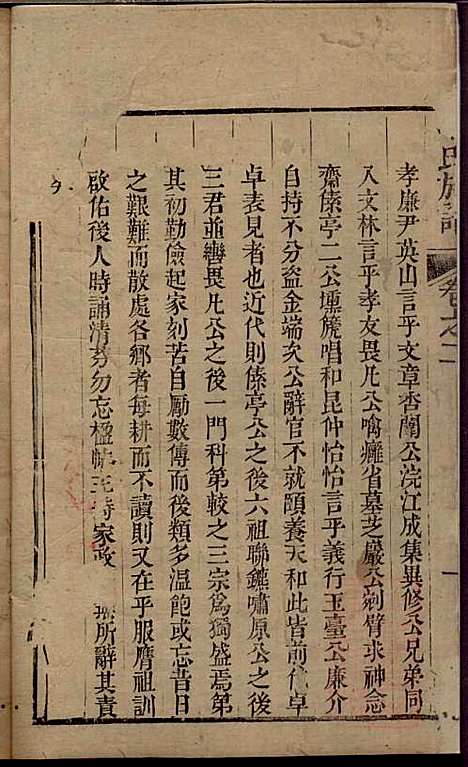 孝廉尹英山言乎文章杏閣公浣江成集異修公兄弟同
入文林言乎孝友畏凡公噙癰省墓芝巖公刲臂求神念
齋傃亭二公壎篪唱和昆仲怡怡言乎義行玉臺公廉介
自持不分盜金端次公辭官不就頤養天和此皆前代卓
卓表見者也近代則傃亭公之後六祖聯鑣嘯原公之後
三君並轡畏凡公之後一門科第較之三宗為獨盛焉第
其初勤儉起家刻苦自勵數傳而後類多温飽或忘昔日
之艱難而散處各鄉者每耕而不讀則又在乎服膺祖訓
啟佑後人時誦清芬勿忘楹帖 家政 所辭其責
氏族譜 卷之二